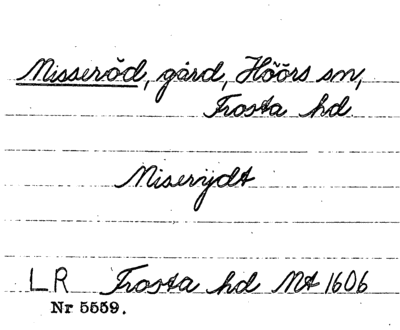 Misseröd, gård, Höörs sn,
Frosta hd
Miserÿdt
LR Frosta hd Mt 1606
Nr 5559.